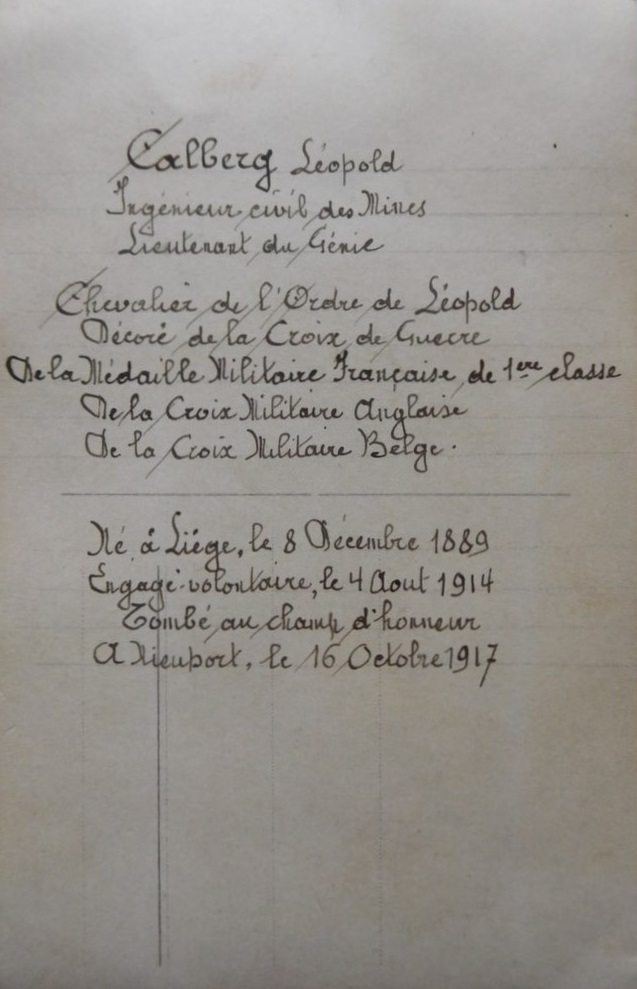 Calberg Léopold
Ingénieur civil des Mines
Lieutenant du Génie
Chevalier de l'Ordre de Léopold
Décoré de la Croix de Guerre
De la Médaille Militaire Française de 1ere classe
De la Croix Militaire Anglaise
De la Croix Militaire Belge.
Né à Liége, le 8 Décembre 1889
Engagé volontaire, le 4 Aout 1914
Tombé au champ d'honneur
A Nieuport, le 16 Octobre 1917